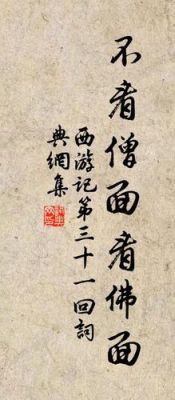 不看僧面看佛面
西游记第三十一回詞
典網集